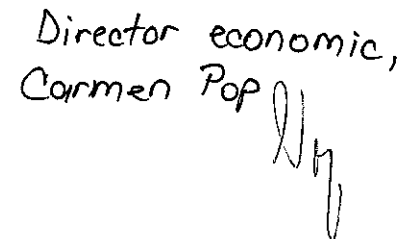 Director economic,
Carmen Pop